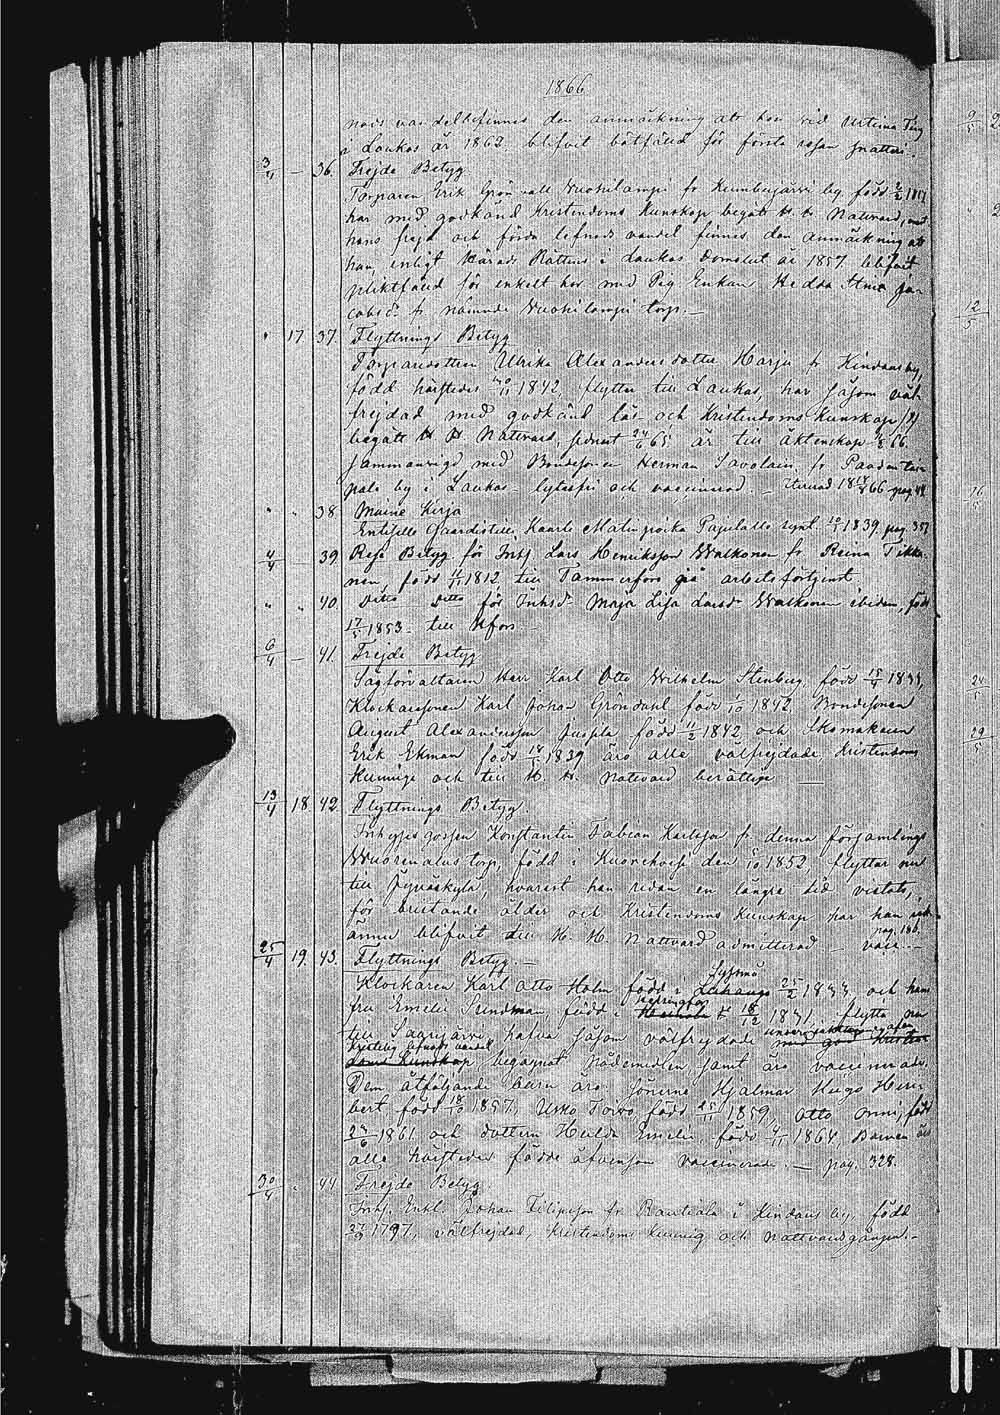 1866
nads vandel finnes den anmärkning att hon vid Urtima Ting
i Laukas år 1862, blifvit bötfälld för första resan snatteri.
3/4 — 36. Frejde Betyg
Torparen Erik Grönvall Wuohilampi fr Kumbujärvi by, född
har med godkänd Kristendoms kunskap begått H. H. Nattvard, men
hans frejd och förda lefnads vandel finnes den anmärkning att
han, enligt Härads Rättens i Laukas domslut år 1857, blifvit
pliktfälld för enkelt hor med Pig Enkan Hedda Stina Ja-
cobsd:r fr nämnde Wuohilampi torp. —
" 17. 37. Flyttnings Betyg
Torparedottren Ulrika Alexandersdotter Harju fr Kindans by,
född härstedes 1842, flyttar till Laukas, har såsom väl-
frejdad med godkänd läs och Kristendoms kunskap
begått H. H. Nattvard, sednast 24/6 65 är till äktenskap 66
sammanvigd med Bondesonen Herman Savolain, fr Paadentai-
pale by i Laukas — lytesfri och vaccinerad. — 1866 pag
" " 38. Muine Kirja
Entiselle Kaarle Matinpoika Papilalle synt. 1839. pag. 357
4/4 — 39. Rese Betyg för Inhs. Lars Henriksson Walkonen fr Reina Tikka-
nen, född 1812 till Tammerfors på arbetsförtjenst
" " 40. Ditto Ditto för Inhsd:r Maja Lisa Larsd:r Walkonen ibidem, född
17/5 1853 till Hfors —
6/4 — 41. Frejde Betyg
Sågförvaltaren Herr Karl Otto Wilhelm Stenberg, född
Klockaresonen Karl Johan Gröndahl född 1/10 1842 Bondesonen
August Alexandersson född 11/2 1842 och Skomakaren
Erik Ekman född 18/5 1839 äro alla välfrejdade, Kristendoms
kunnige och till H. H. Nattvard berättige —
13/4 18. 42. Flyttnings Betyg.
Inhyses gossen Konstantin Fabian Karlsson fr denna församlings
Wuorenalus torp, född i Kuorehvesi den 1852, flyttar nu
till Jyväskylä, hvarest han redan en längre tid vistats,
för bristande ålder och Kristendoms kunskap har han
ännu blifvit till H. H. Nattvard admitterad — vacc. — pag. 186.
25/4 19. 43. Flyttnings Betyg. —
Klockaren Karl Otto Holm född i Sysmä 25/2 och hans
fru Emelie Sundman, född i 18/12 1831 flytta nu
till Saarijärvi, hafva såsom välfrejdade med god Kristen-
doms kundskap begagnat nådemedlen, samt äro vaccinerade.
Dem åtföljande barn äro: Sönerne Hjalmar Hugo Heri-
bert född 18/10 1857, Usko Toivo född 25/11 1859, Otto Onni, född
1861 och dottern Hulda Emelie född 1864. Barnen äro
alla härstedes födde äfvensom vaccinerade. — pag. 328.
30/4 " 44. Frejde Betyg
Inhs. Enkl. Johan Filipsson fr Rautiala i Kindans by, född
1797, välfrejdad, Kristendoms kunnig och nattvardsgången. —